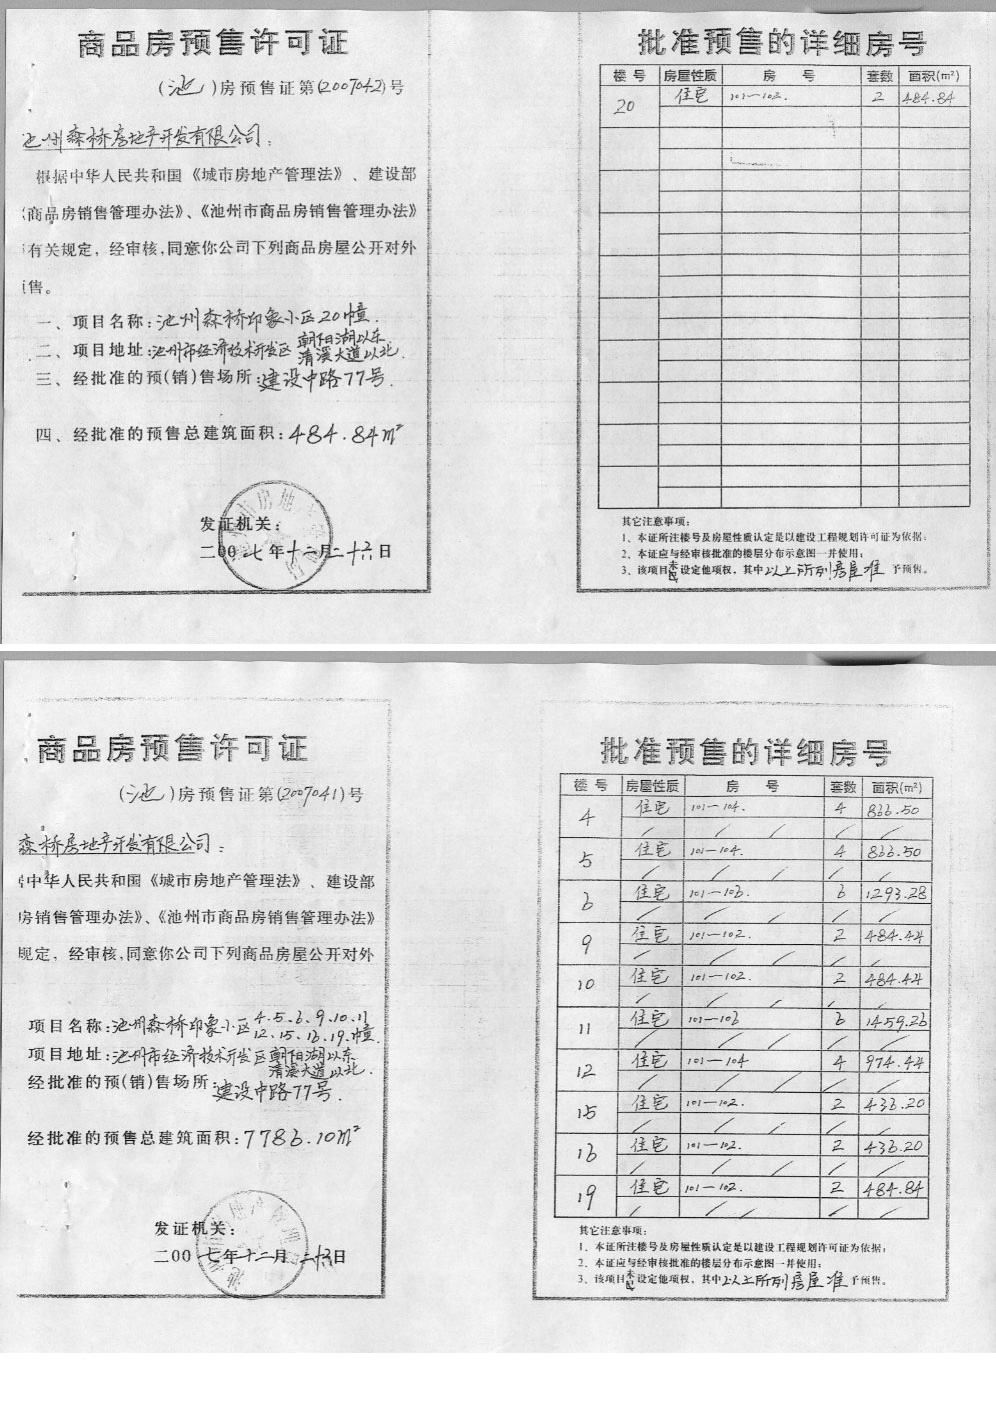 商品房预售许可证
(池)房预售证第(2007042)号
池州森桥房地产开发有限公司:
根据中华人民共和国《城市房地产管理法》、建设部
《商品房销售管理办法》、《池州市商品房销售管理办法》
有关规定，经审核,同意你公司下列商品房屋公开对外
售。
一、项目名称:池州森桥印象小区20幢.
二、项目地址:池州市经济技术开发区 朝阳湖以东
清溪大道以北.
三、经批准的预(销)售场所:建设中路77号.
四、经批准的预售总建筑面积:484.84m²
发证机关:
二00七年十二月二十六日
批准预售的详细房号
楼 号 房屋性质 房 号 套数 面积(m²)
20 住宅 101—102. 2 484.84
其它注意事项:
1、本证所注楼号及房屋性质认定是以建设工程规划许可证为依据;
2、本证应与经审核批准的楼层分布示意图一并使用;
3、该项目未设定他项权，其中以上所列房屋准 予预售。
商品房预售许可证
(池)房预售证第(2007041)号
森桥房地产开发有限公司:
中华人民共和国《城市房地产管理法》、建设部
房销售管理办法》、《池州市商品房销售管理办法》
规定，经审核,同意你公司下列商品房屋公开对外
项目名称:池州森桥印象小区 4.5.6.9.10.11
12.15.16.19.幢.
项目地址:池州市经济技术开发区 朝阳湖以东
清溪大道以北.
经批准的预(销)售场所:建设中路77号.
经批准的预售总建筑面积:7786.10m²
发证机关:
二00七年十二月二十六日
批准预售的详细房号
楼 号 房屋性质 房 号 套数 面积(m²)
4 住宅 101—104. 4 866.50
5 住宅 101—104. 4 866.50
6 住宅 101—106. 6 1293.28
9 住宅 101—102. 2 484.44
10 住宅 101—102. 2 484.44
11 住宅 101—106 6 1459.26
12 住宅 101—104 4 974.44
15 住宅 101—102. 2 436.20
16 住宅 101—102. 2 436.20
19 住宅 101—102. 2 484.84
其它注意事项:
1、本证所注楼号及房屋性质认定是以建设工程规划许可证为依据;
2、本证应与经审核批准的楼层分布示意图一并使用;
3、该项目未设定他项权，其中以上所列房屋准 予预售。